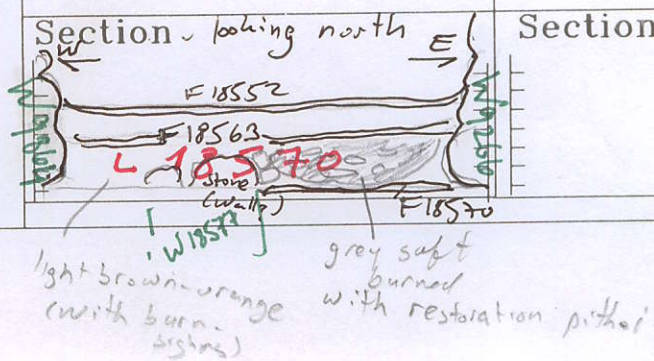 Section. looking north
Section
W
E
F18552
F18563
L 18570
Stone
(Wall?)
F18570
W18577
light brown-orange
(with burn.
sighns)
grey soft
burned
with restoration pithoi